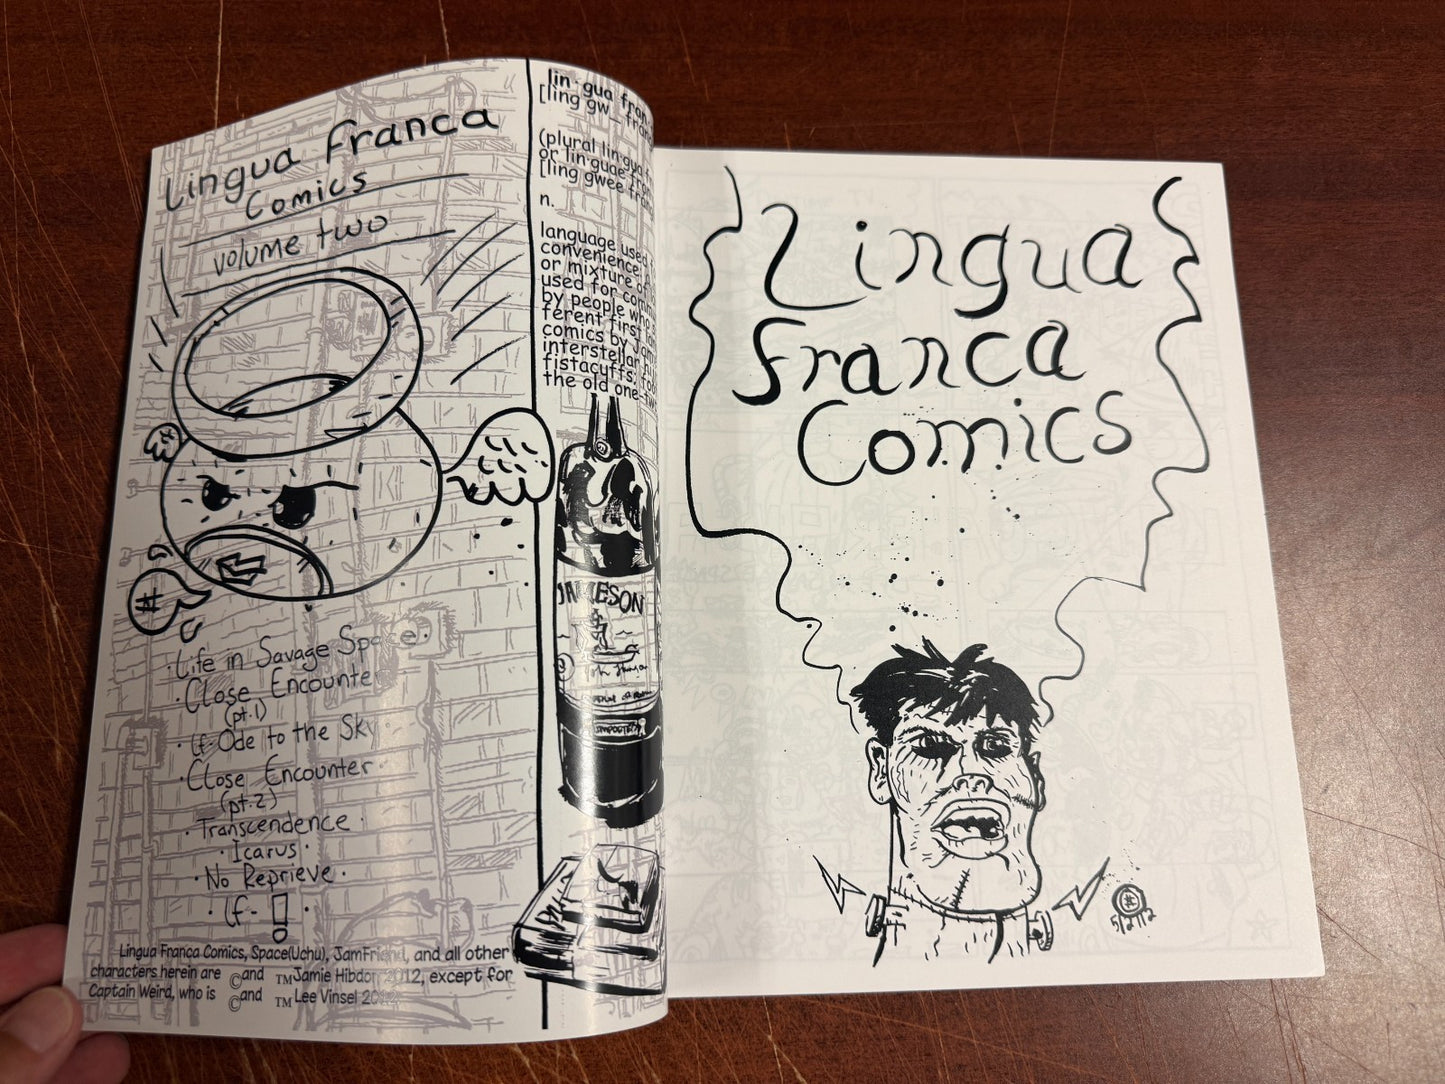 Lingua Franca
Comics
volume two
#
· Life in Savage
· Close Encounte
(pt.1)
· Lf Ode to the Sky
· Close Encounter ·
(pt.2)
· Transcendence ·
· Icarus ·
· No Reprieve ·
· Lf - ! ·
Lingua Franca Comics, Space(Uchu), JamFriend, and all other
characters herein are © and TM Jamie Hibdon 2012, except for
Captain Weird, who is © and TM Lee Vinsel
lin·gua fran
[ling gw_ fran
(plural lin·gua
or lin·guae fran
[ling gwee fran
n.
language used
convenience
or mixture of
used for com
by people who
ferent first
comics by Jam
interstellar
fistacuffs;
the old one-tw
JAMESON
Lingua
Franca
Comics
#
5/2/12